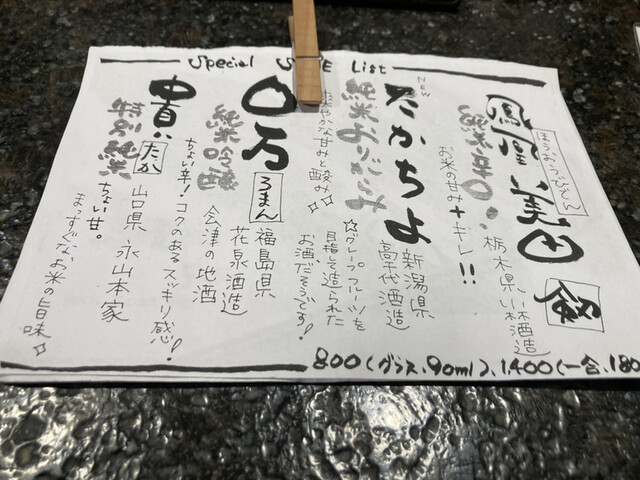 Special SAKE List
鳳凰美田
ほうおうびでん
剱
純米辛口!
栃木県 小林酒造
お米の甘み+キレ!!
NEW
たかちよ
純米おりがらみ
新潟県
高千代酒造
やかな甘みと酸み☆
☆グレープフルーツを
目指して造られた
お酒だそうです!
ロ万
ろまん
純米吟醸
福島県
花泉酒造
会津の地酒
ちょい辛!コクのあるスッキリ感!
貴
たか
特別純米
山口県 永山本家
ちょい甘。
まっすぐなお米の旨味☆
800(グラス、90ml)、1400(一合、180